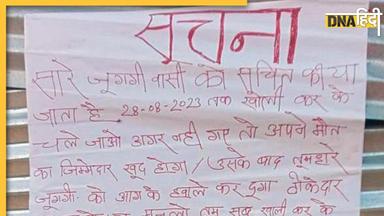 DNA हिंदी
सूचना
सारे जुग्गी वासी को सूचित कीया
जाता है 28-08-2023 तक खाली कर के
चले जाओ अगर नही गए तो अपने मौत
का जिम्मेदार खुद होगा / उसके बाद तुमहारे
जुग्गी को आग के हवाले कर दुगा ठेकेदार
तुम सब खाली कर के